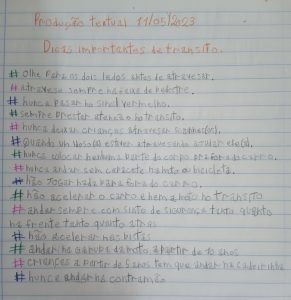 Produção textual 11/05/2023
Dicas importantes de transito.
# Olhe para os dois lados antes de atravesar.
# atravese sempre na faixa de pedestre.
# nunca pasar no sinal vermelho.
# sempre prestar atensa no transito.
# nunca deixar crianças atravesar sozinhos(as).
# quando um idoso(a) estiver atravesando ajudar ele(a).
# nunca colocar nenhuma parte do corpo pra fora do carro.
# nunca andar sem capacete na moto ou bicicleta.
# não jogar nada para fora do carro.
# não acelerar o carro e nem a moto no transito
# andar sempre com sinto de siguranca tanto quanto
na frente tanto quanto atras
# não acelerar nas pistas
# andar na garupa da moto a partir de 10 anos
# crianças a partir de 5 anos tem que andar na cadeirinha
# nunca andar na contramão